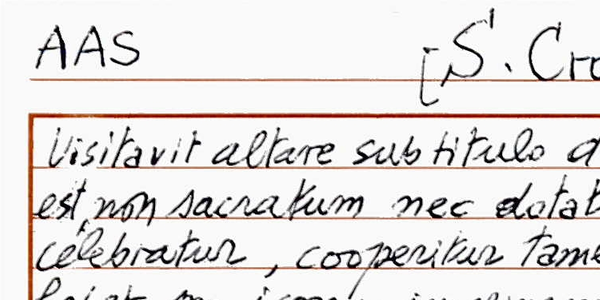 AAS [S. Cro
Visitavit altare sub titulo d
est, non sacratum nec dotat
celebratur, cooperitur tame